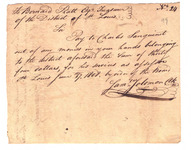 No. 24
To Bernard Pratt Esqr Treasurer
of the District of St. Louis
Sir
Pay to Charles Sanguinet
out of any monies in your hands belonging
to the district aforesaid the Sum of Thirty
four dollars for his services as assessor
St Louis June 1808 by order of the Board